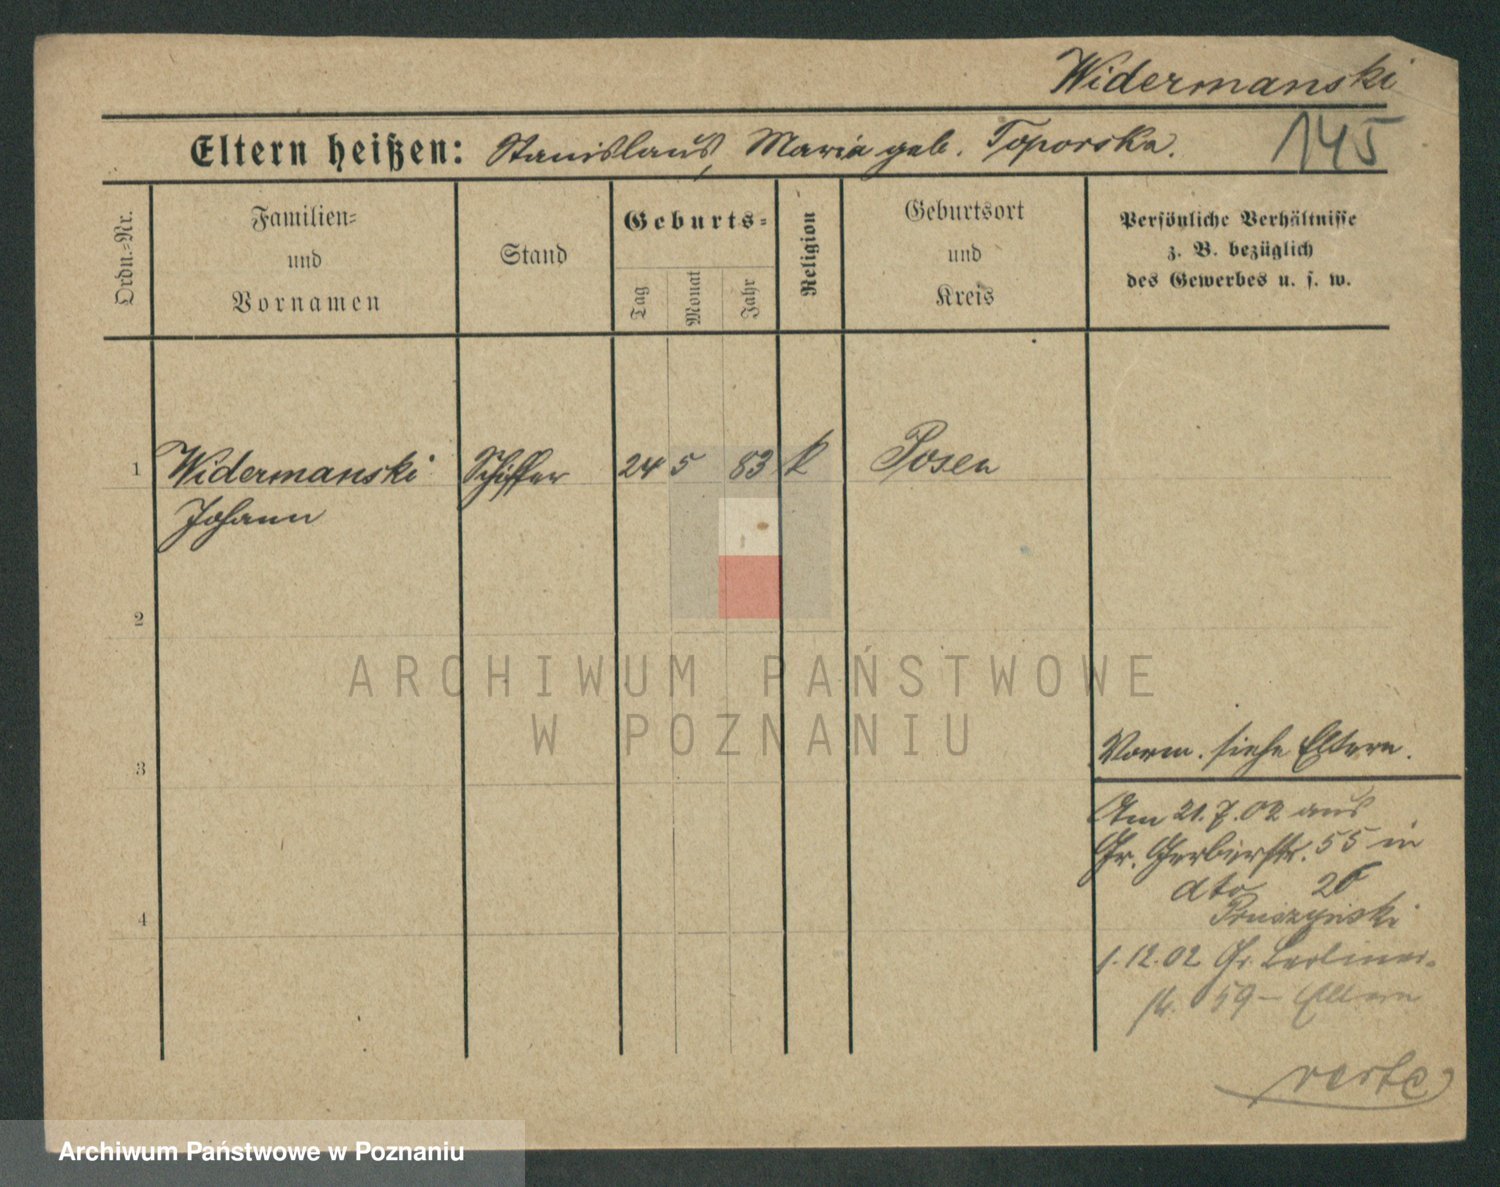 Widermanski
Eltern heißen: Stanislaus, Maria geb. Toporska.
145
Ordn.=Nr.
Familien=
und
Vornamen
Stand
Geburts=
Tag
Monat
Jahr
Religion
Geburtsort
und
Kreis
Persönliche Verhältnisse
z. B. bezüglich
des Gewerbes u. s. w.
1 Widermanski Schiffer 24 5 83 k Posen
Johann
2
3
4
Vorm. siehe Eltern.
Am 21.7.02 aus
Gr. Gerberstr. 55 in
dto 26
Pruszynski
1.12.02 Gr. Berliner-
str. 59 - Eltern
verte
ARCHIWUM PAŃSTWOWE
W POZNANIU
Archiwum Państwowe w Poznaniu